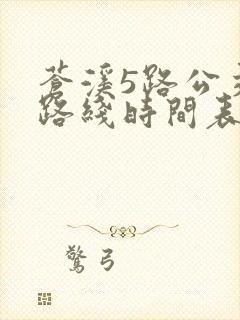 蒼溪5路公交
路綫時間表
驚弓